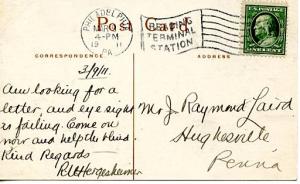 Post Card
PHILADELPHIA
MAR
4-PM
19 11
PA.
READING
TERMINAL
STATION
CORRESPONDENCE
ADDRESS
3/9/11.
Am looking for a
letter, and eye sight
is failing. Come on
now and help the blind
Kind Regards —
R. Hergesheimer
Mr J. Raymond Laird
Hughesville
Penna